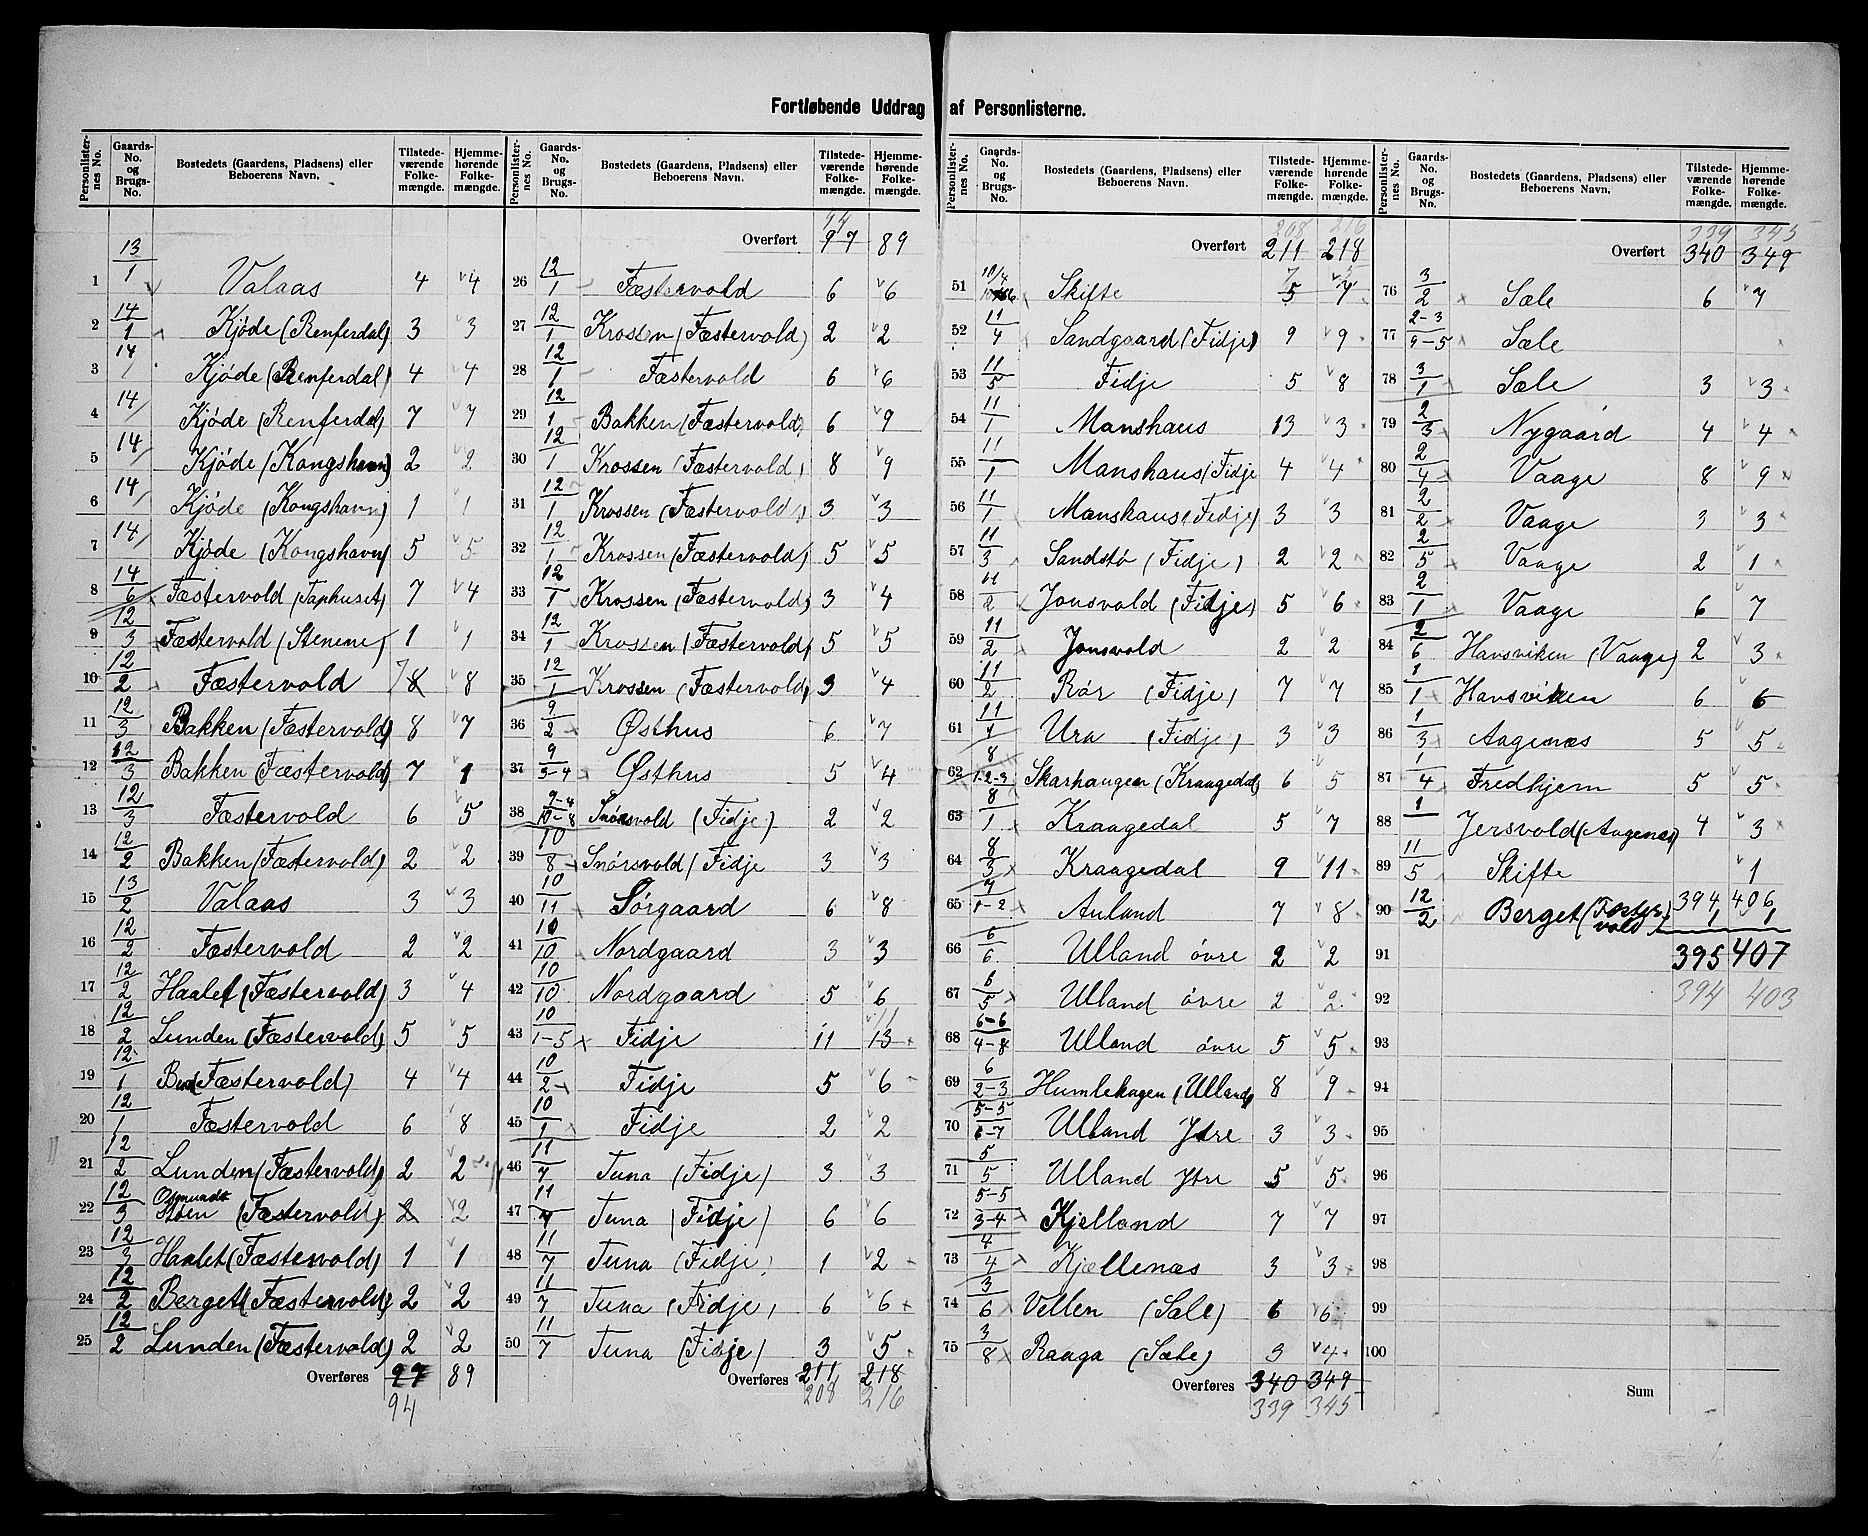 Fortløbende Uddrag af Personlisterne.
Personlister-nes No. | Gaards-No. og Brugs-No. | Bostedets (Gaardens, Pladsens) eller Beboerens Navn. | Tilstede-værende Folke-mængde. | Hjemme-hørende Folke-mængde.
1 13/1 Valaas 4 4
2 14/1 Kjøde (Renferdal) 3 3
3 14/ Kjøde (Renferdal) 4 4
4 14/ Kjøde (Renferdal) 7 7
5 14/ Kjøde (Kongshavn) 2 2
6 14/ Kjøde (Kongshavn) 1 1
7 14/ Kjøde (Kongshavn) 5 5
8 14/6 Fæstervold (Taphuset) 7 4
9 12/3 Fæstervold (Stenene) 1 1
10 12/2 Fæstervold 7 8 8
11 12/3 Bakken (Fæstervold) 8 7
12 12/3 Bakken (Fæstervold) 7 1
13 12/3 Fæstervold 6 5
14 12/2 Bakken (Fæstervold) 2 2
15 13/2 Valaas 3 3
16 12/2 Fæstervold 2 2
17 12/2 Haalet (Fæstervold) 3 4
18 12/2 Lunden (Fæstervold) 5 5
19 12/1 (Fæstervold) 4 4
20 12/1 Fæstervold 6 8
21 12/2 Lunden (Fæstervold) 2 2
22 12/3 Osmundstøen (Fæstervold) 2 2
23 12/3 Haalet (Fæstervold) 1 1
24 12/2 Berget (Fæstervold) 2 2
25 12/2 Lunden (Fæstervold) 2 2
Overføres 97 89
94
Personlister-nes No. | Gaards-No. og Brugs-No. | Bostedets (Gaardens, Pladsens) eller Beboerens Navn. | Tilstede-værende Folke-mængde. | Hjemme-hørende Folke-mængde.
94
Overført 97 89
26 12/1 Fæstervold 6 6
27 12/1 Krossen (Fæstervold) 2 2
28 12/1 Fæstervold 6 6
29 12/1 Bakken (Fæstervold) 6 9
30 12/1 Krossen (Fæstervold) 8 9
31 12/1 Krossen (Fæstervold) 3 3
32 12/1 Krossen (Fæstervold) 5 5
33 12/1 Krossen (Fæstervold) 3 4
34 12/1 Krossen (Fæstervold) 5 5
35 12/1 Krossen (Fæstervold) 3 4
36 9/2 Østhus 6 7
37 9/3-4 Østhus 5 4
38 9-4/10-8 Snørsvold (Fidje) 2 2
39 10/8 Snørsvold (Fidje 3 3
40 10/11 Sørgaard 6 8
41 10/10 Nordgaard 3 3
42 10/10 Nordgaard 5 6
43 10/1-5 Fidje 11 13 11
44 10/2 Fidje 5 6
45 10/1 Fidje 2 2
46 11/7 Tuna (Fidje) 3 3
47 11/7 Tuna (Fidje) 6 6
48 11/7 Tuna (Fidje) 1 2
49 11/7 Tuna (Fidje) 6 6
50 11/7 Tuna (Fidje) 3 5
Overføres 211 218
208 216
Personlister-nes No. | Gaards-No. og Brugs-No. | Bostedets (Gaardens, Pladsens) eller Beboerens Navn. | Tilstede-værende Folke-mængde. | Hjemme-hørende Folke-mængde.
208 216
Overført 211 218
51 10/7 Skifte 5 7
52 11/4 Sandgaard (Fidje) 9 9
53 11/5 Fidje 5 8
54 11/1 Manshaus 13 3
55 11/1 Manshaus (Fidje 4 4
56 11/1 Manshaus (Fidje) 3 3
57 11/3 Sandstø (Fidje) 2 2
58 11/2 Jonsvold (Fidje) 5 6
59 11/2 Jonsvold 2 2
60 11/2 Rør (Fidje) 7 7
61 11/1 Ura (Fidje) 3 3
62 8/1-2-3 Skarhaugen (Kraagedal) 6 5
63 8/1 Kraagedal 5 7
64 8/3 Kraagedal 9 11
65 7/1-2 Auland 7 8
66 6/6 Ulland øvre 2 2
67 6/5 Ulland øvre 2 2
68 6-6/4-8 Ulland øvre 5 5
69 6/2-3 Humlehagen (Ulland) 8 9
70 5-5/6-7 Ulland Ytre 3 3
71 5/5 Ulland Ytre 5 5
72 5-5/3-4 Kjelland 7 7
73 4/4 Kjællenæs 3 3
74 3/6 Vellen (Sæle) 6 6
75 3/8 Raaga (Sæle) 3 4
Overføres 340 349
339 345
Personlister-nes No. | Gaards-No. og Brugs-No. | Bostedets (Gaardens, Pladsens) eller Beboerens Navn. | Tilstede-værende Folke-mængde. | Hjemme-hørende Folke-mængde.
339 345
Overført 340 349
76 3/2 Sæle 6 7
77 2-3/9-5 Sæle
78 3/1 Sæle 3 3
79 2/3 Nygaard 4 4
80 2/4 Vaage 8 9
81 2/2 Vaage 3 3
82 2/5 Vaage 2 1
83 2/1 Vaage 6 7
84 2/6 Havsviken (Vaage) 2 3
85 1/1 Havsviken 6 6
86 1/3 Aagenæs 5 5
87 1/4 Fredhjem 5 5
88 1 Jersvold (Aagenæs) 4 3
89 11/5 Skifte 1
394 406
90 12/2 Berget (Fæstervold) 1 1
91 395 407
92 394 403
93
94
95
96
97
98
99
100
Sum